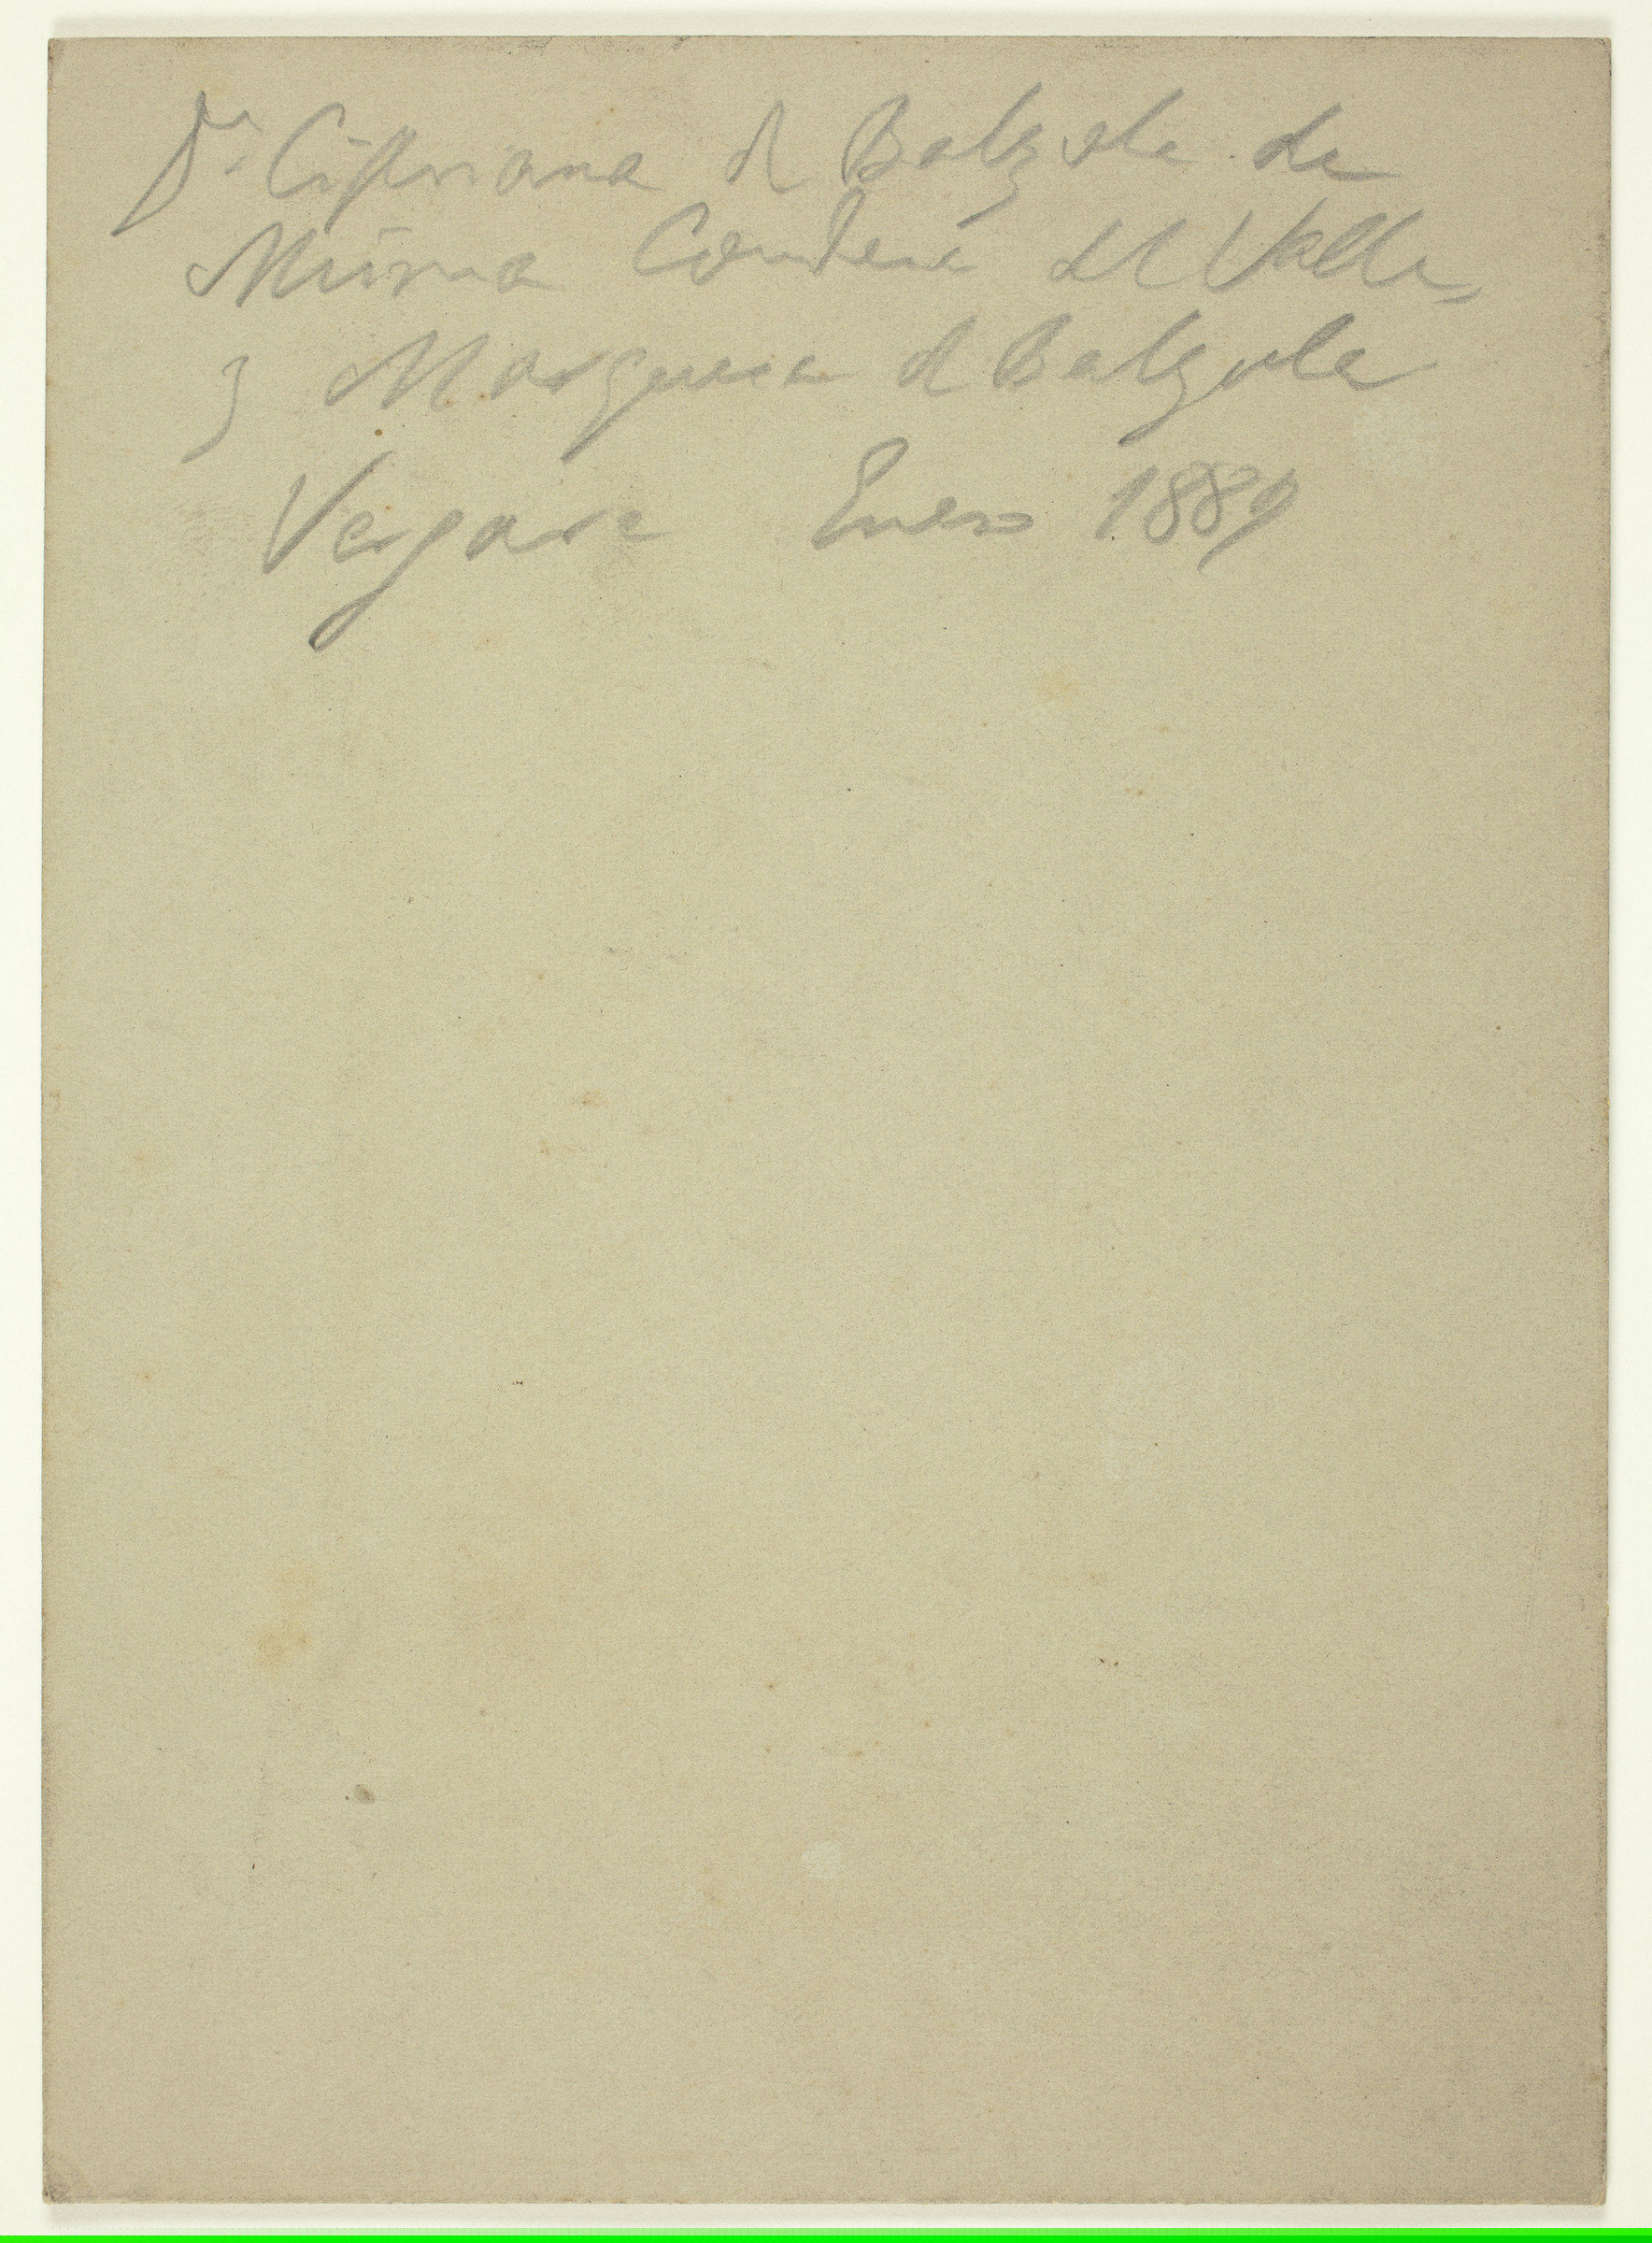 Dª Cipriana de Balzola de
Murua Condesa del Valle,
y Marquesa de Balzola
Vergara Enero 1889